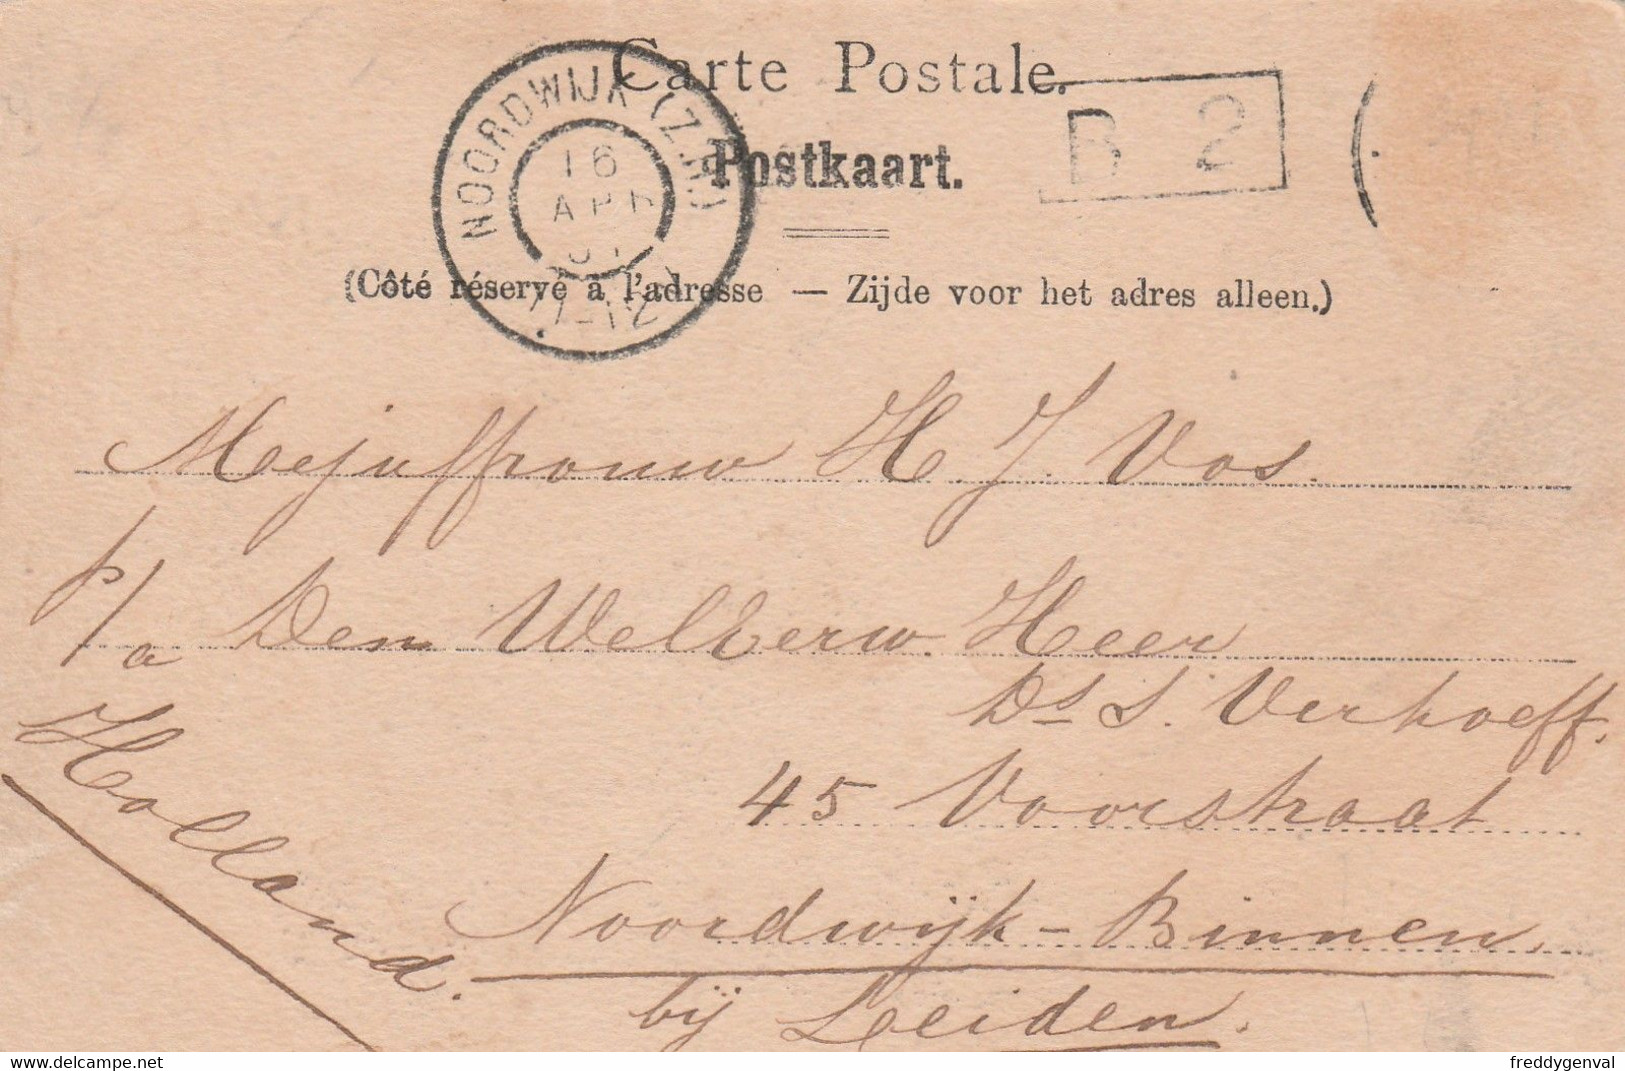 Carte Postale.
B 2
Postkaart.
NOORDWIJK (Z.H.)
16
APR
(Côté réservé à l'adresse — Zijde voor het adres alleen.)
Mejuffrouw H J. Vos.
p/a Den WelEerw. Heer
Ds S. Verhoeff.
45 Voorstraat
Noordwijk-Binnen.
bij Leeiden.
Holland.
delcampe.net
freddygenval